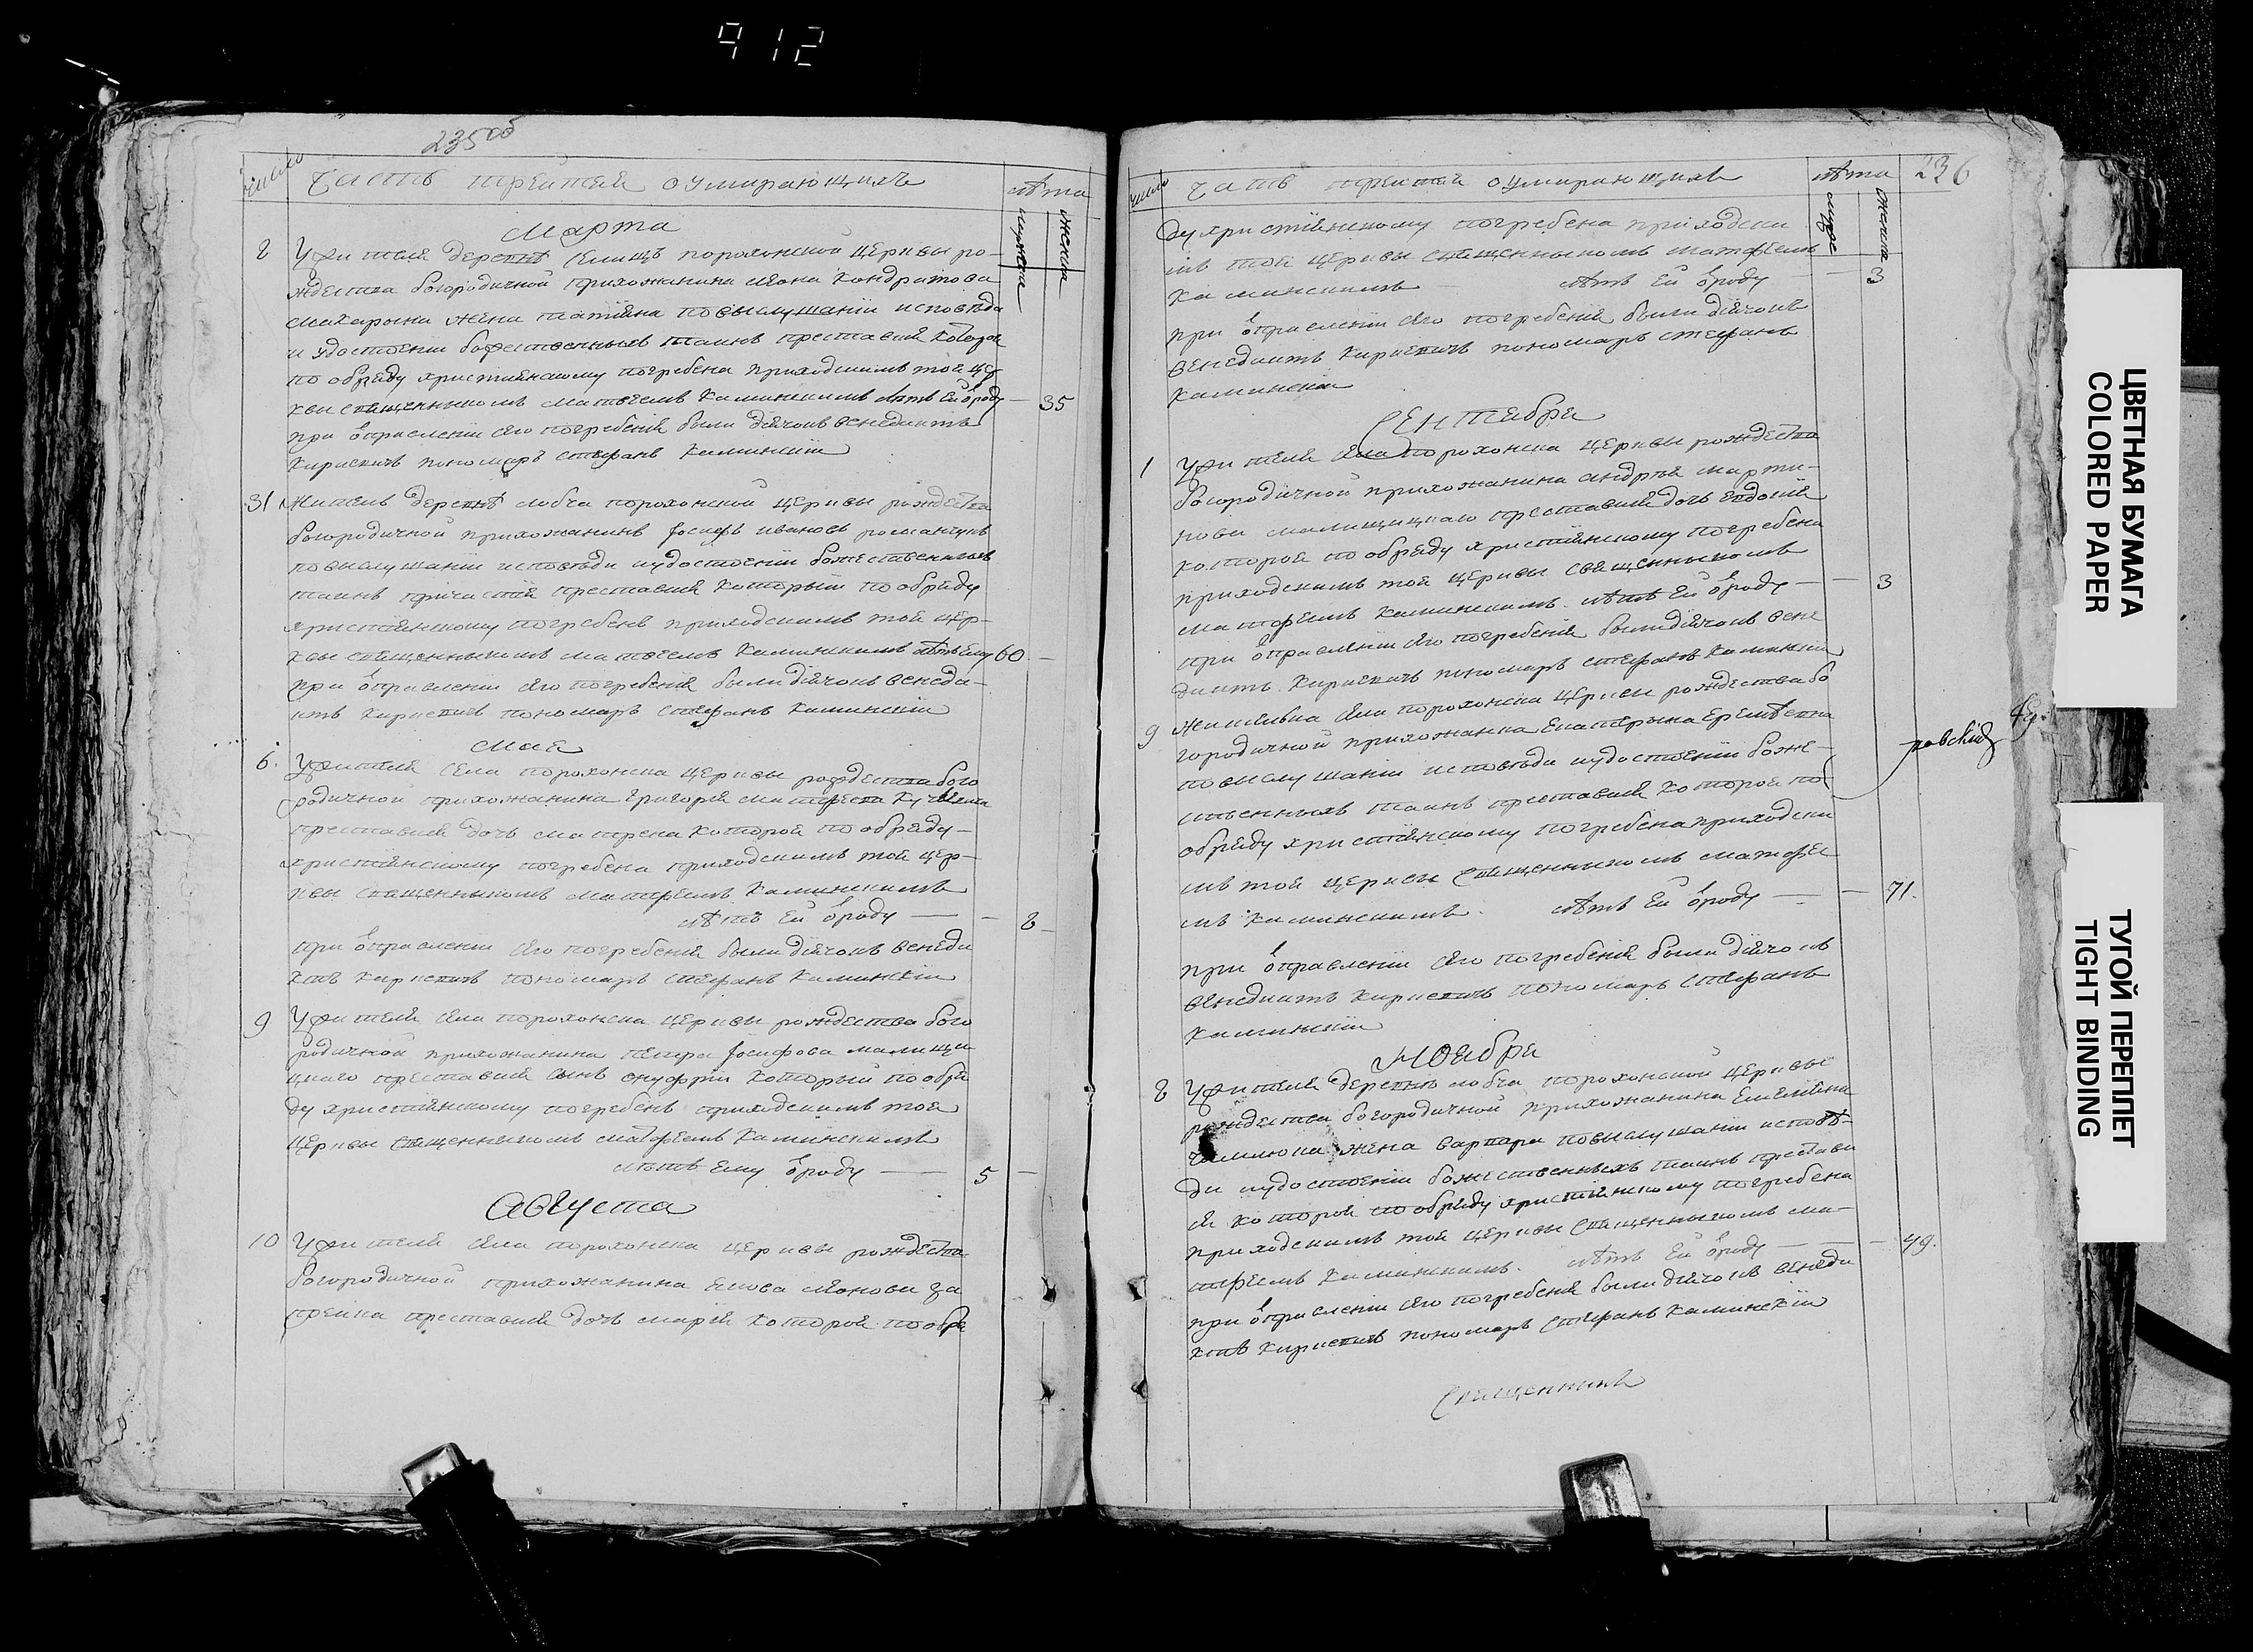 912
235 об
число
Часть третей о умирающихъ
лѣта
мужеска
женска
Марта
2 У жителя деревнѣ Селищъ порохонской церквы ро-
ждества богородичной прихожанина леона кондратова
жена татияна повыслушанiи исповѣда
и удостоенiи божественныхъ таинъ преставися которая
по обряду християнскому погребена приходскимъ той цер
квы священныкомъ матвеемъ каминскимъ лѣтъ ей ѿроду — 35
при ѿправленiи его погребенiя были дiячокъ венедиктъ
кириевичъ пономаръ стефанъ каминскiй
31 Житель деревнѣ лобча порохонской церквы рождества
богородичной прихожанинъ Iосифъ ивановъ романчукъ
повыслушанiи исповѣди и удостоенiи божественныхъ
таинъ причастiя преставися который по обряду
християнскому погребенъ приходскимъ той цер-
квы священныкомъ матвеемъ каминскимъ лѣтъ ему 60 —
при ѿправленiи его погребенiя были дiячокъ венеди-
ктъ кириевичъ пономаръ стефанъ каминскiй
мая
6. У жителя села порохонска церквы рождества бого
родичной прихожанина григорiя матфеева
преставися дочь матрена которая по обряду-
християнскому погребена приходскимъ той цер-
квы священныкомъ матфеемъ каминскимъ
лѣтъ ей ѿроду — — 2
при ѿправленiи его погребенiя были дiячокъ венеди
ктъ кириевичъ пономаръ стефанъ каминскiй
9 У жителя села порохонска церквы рождества бого
родичной прихожанина петра Iосифова малищи
цкаго преставися сынъ онуфрiй который по обря
ду християнскому погребенъ приходскимъ той
церквы священныкомъ матфеемъ каминскимъ
лѣтъ ему ѿроду — — 5 —
Августа
10 У жителя села порохонска церквы рождества
богородичной прихожанина якова леонови
преставися дочь марiя которая по обря
236
число
Часть третей о умирающихъ
лѣта
муже
женска
ду християнскому погребена приходски
мъ той церквы священныкомъ матфеемъ
каминскимъ лѣтъ ей ѿроду — 3
при ѿправленiи его погребенiя были дiячокъ
венедиктъ кириевичъ пономаръ стефанъ
каминскiй
Сентября
1 У жителя села порохонска церквы рождества
богородичной прихожанина андрея марти-
нови малищицкаго преставися дочь евдокiя
которая по обряду християнскому погребена
приходскимъ той церквы священныкомъ
матфеемъ каминскимъ. лѣтъ ей ѿроду — — 3
при ѿправленiи его погребенiя были дiячокъ вене
диктъ кириевичъ пономаръ стефанъ каминскiй
9 Жителька села порохонска церквы рождества бо
городичной прихожанка екатерына еремѣевна
повыслушанiи исповѣди и удостоенiи боже-
ственныхъ таинъ преставися которая по
обряду християнскому погребена приходски
мъ той церквы священныкомъ матфее
мъ каминскимъ. лѣтъ ей ѿроду — — 71.
при ѿправленiи его погребенiя были дiячокъ
венедиктъ кириевичъ пономаръ стефанъ
каминскiй
Ноября
2 У жителя деревню лобча порохонской церквы
рождества богородичной прихожанина емелияна
жена варвара повыслушанiи исповѣ-
ди и удостоенiи божественныхъ таинъ престави
ся которая по обряду християнскому погребена
приходскимъ той церквы священныкомъ ма-
тфеемъ каминскимъ. лѣтъ ей ѿроду — — 49.
при ѿправленiи его погребенiя были дiячокъ венеди
ктъ кириевичъ пономаръ стефанъ каминскiй
Священникъ
ЦВЕТНАЯ БУМАГА
COLORED PAPER
ТУГОЙ ПЕРЕПЛЕТ
TIGHT BINDING